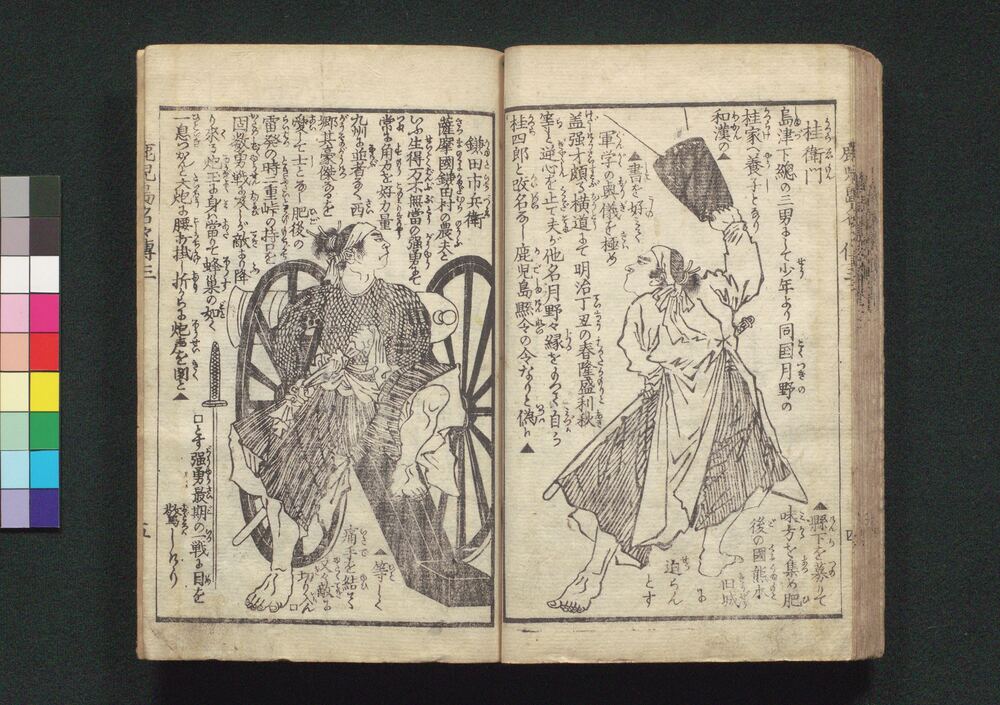 桂衛門
島津下總の三男にして少年より同国月野の
桂家へ養子となり
和漢の▲
▲書を好く
軍学の奥儀を極め
盖强才頗る横道にて明治丁丑の春隆盛利秋
等も逆心を止て夫が他名月野々縁をもつて自ら
桂四郎と改名なし鹿児島縣令の令なりと偽り▲
▲縣下を募りて
味方を集め肥
後の國熊本
旧城
に
迫らん
とす
鎌田市兵衛
薩摩國鎌田村の農夫と
いふ生得万夫無當の强勇にて
常に角力を好力量
九州に並者なく西
郷其豪傑なるを
愛し士となし肥後の
雷発の時二重峠の持口を
固数勇戦に及しが敵より降
り來る炮玉を身に當りて蜂巣の如く
一息つかんと大炮に腰打掛折から炮声を聞と▲
▲等しく
痛手を結て
又々敵に
切入ん
口とす强勇最期の一戦に目を
驚しけり
鹿児島名々傳三
五